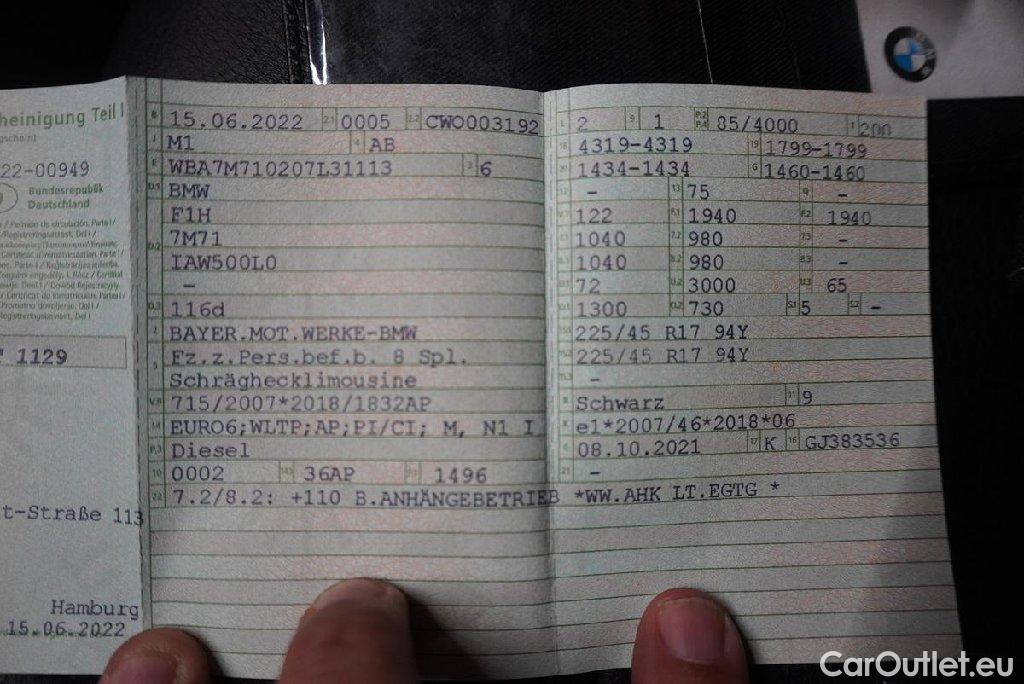 heinigung Teil I
22-00949
Bundesrepublik
Deutschland
1129
t-Straße 113
Hamburg
15.06.2022
B 15.06.2022 2.1 0005 2.2 CWO003192
J M1 4 AB
E WBA7M710207L31113 3 6
D.1 BMW
F1H
7M71
D.2 IAW500L0
–
D.3 116d
2 BAYER.MOT.WERKE-BMW
5 Fz.z.Pers.bef.b. 8 Spl.
Schräghecklimousine
V.9 715/2007*2018/1832AP
14 EURO6;WLTP;AP;PI/CI; M, N1 I
P.3 Diesel
10 0002 14.1 36AP P.1 1496
22 7.2/8.2: +110 B.ANHÄNGEBETRIEB *WW.AHK LT.EGTG *
L 2 9 1 P.2 P.4 85/4000 T 200
18 4319-4319 19 1799-1799
20 1434-1434 G 1460-1460
12 – 13 75 Q –
V.7 122 F.1 1940 F.2 1940
7.1 1040 7.2 980 7.3 –
8.1 1040 8.2 980 8.3 –
U.1 72 U.2 3000 U.3 65
O.1 1300 O.2 730 S.1 5 S.2 –
15.1 225/45 R17 94Y
15.2 225/45 R17 94Y
15.3 –
R Schwarz 11 9
K e1*2007/46*2018*06
6 08.10.2021 17 K 16 GJ383536
21 –
CarOutlet.eu